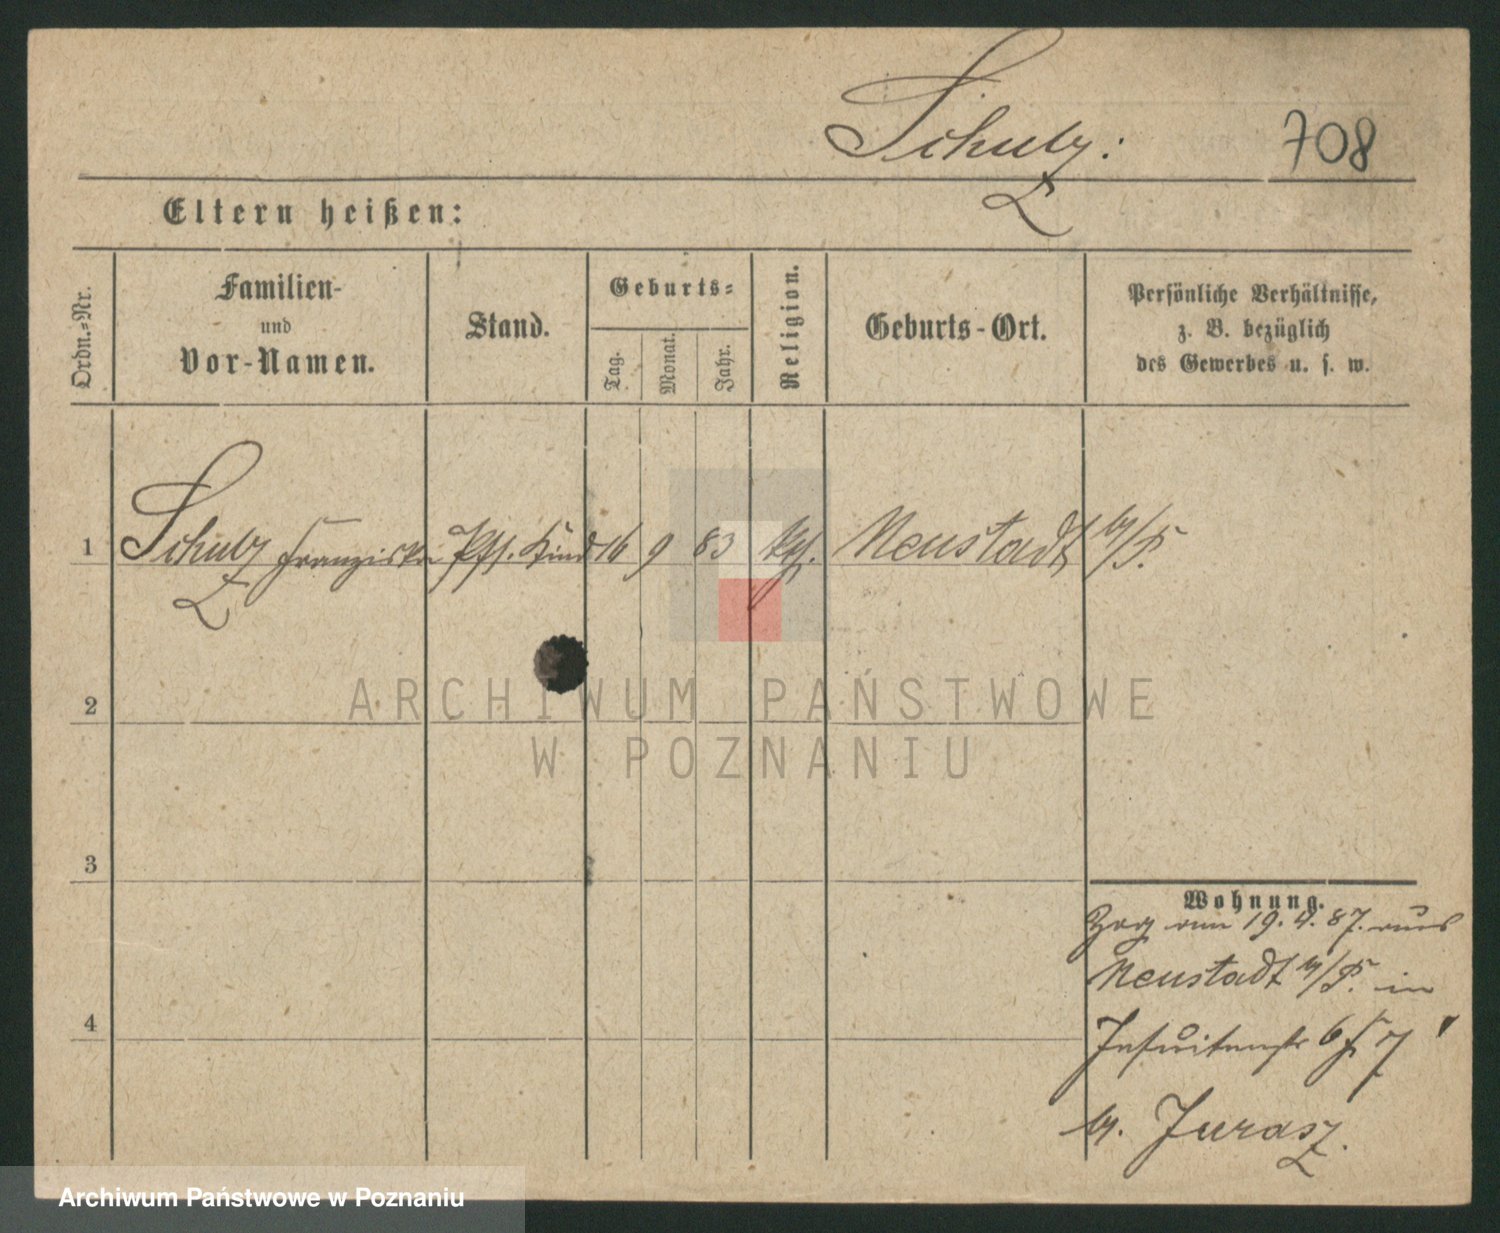 Schulz:
708
Eltern heißen:
Ordn.=Nr.
Familien-
und
Vor-Namen.
Stand.
Geburts=
Tag.
Monat.
Jahr.
Religion.
Geburts-Ort.
Persönliche Verhältnisse,
z. B. bezüglich
des Gewerbes u. s. w.
1 Schulz Franziska Pfl. Kind 16 9 83 Neustadt b/P.
2
3
4
Wohnung.
Zog am 19.4.87. aus
Neustadt b/P. in
Jesuitenstr 6
b. Jurasz.
ARCHIWUM PAŃSTWOWE
W POZNANIU
Archiwum Państwowe w Poznaniu